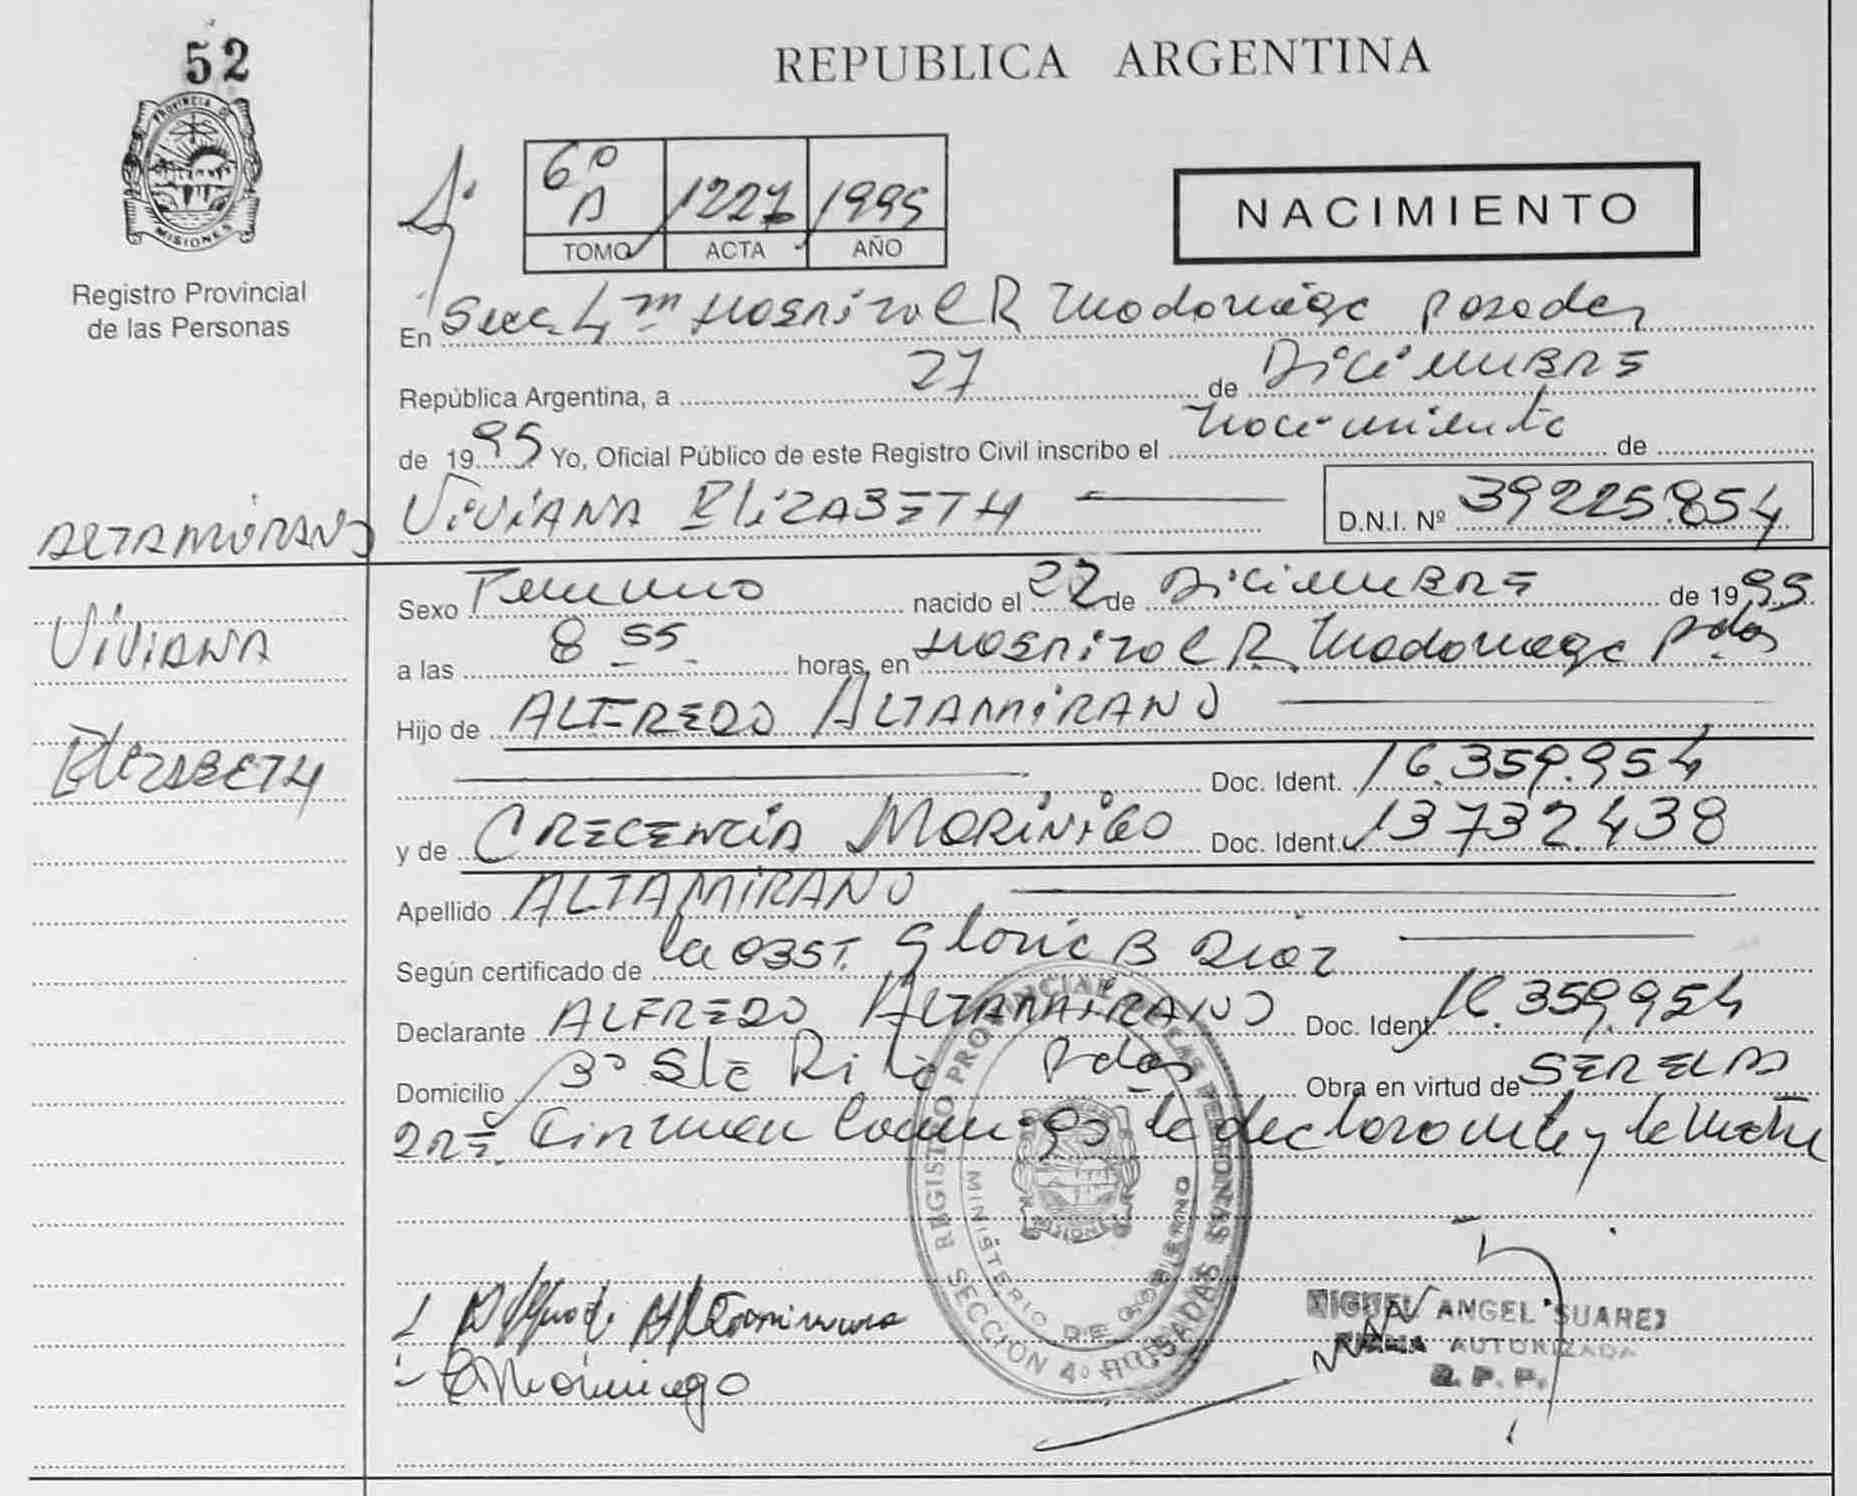 52
PROVINCIA DE
MISIONES
Registro Provincial
de las Personas
ALTAMIRANO
VIVIANA
ELIZABETH
REPUBLICA ARGENTINA
6º
A 1227 1995
TOMO ACTA AÑO
NACIMIENTO
En Secc. 4ta Hospital R Madariaga Posadas
República Argentina, a 27 de DICIEMBRE
de 1995 Yo, Oficial Público de este Registro Civil inscribo el nacimiento de
VIVIANA ELIZABETH D.N.I. Nº 39225.854
Sexo Femenino nacido el 22 de DICIEMBRE de 1995
a las 8 55 horas, en HOSPITAL R. Madariaga Pdas
Hijo de ALFREDO ALTAMIRANO
Doc. Ident. 16.359.954
y de CRECENCIA MORINIGO Doc. Ident. 13732.438
Apellido ALTAMIRANO
Según certificado de la OBST. Gloria B Diaz
Declarante ALFREDO ALTAMIRANO Doc. Ident. 16.359.954
Domicilio Bº Sta Rita Pdas Obra en virtud de SER EL PA
DRE. Firman conmigo el declarante y la madre
REGISTRO PROVINCIAL DE LAS PERSONAS
MINISTERIO DE GOBIERNO
SECCIÓN 4º POSADAS
MISIONES
Alfredo Altamirano
C Morinigo
MIGUEL ANGEL SUAREZ
FIRMA AUTORIZADA
R. P. P.